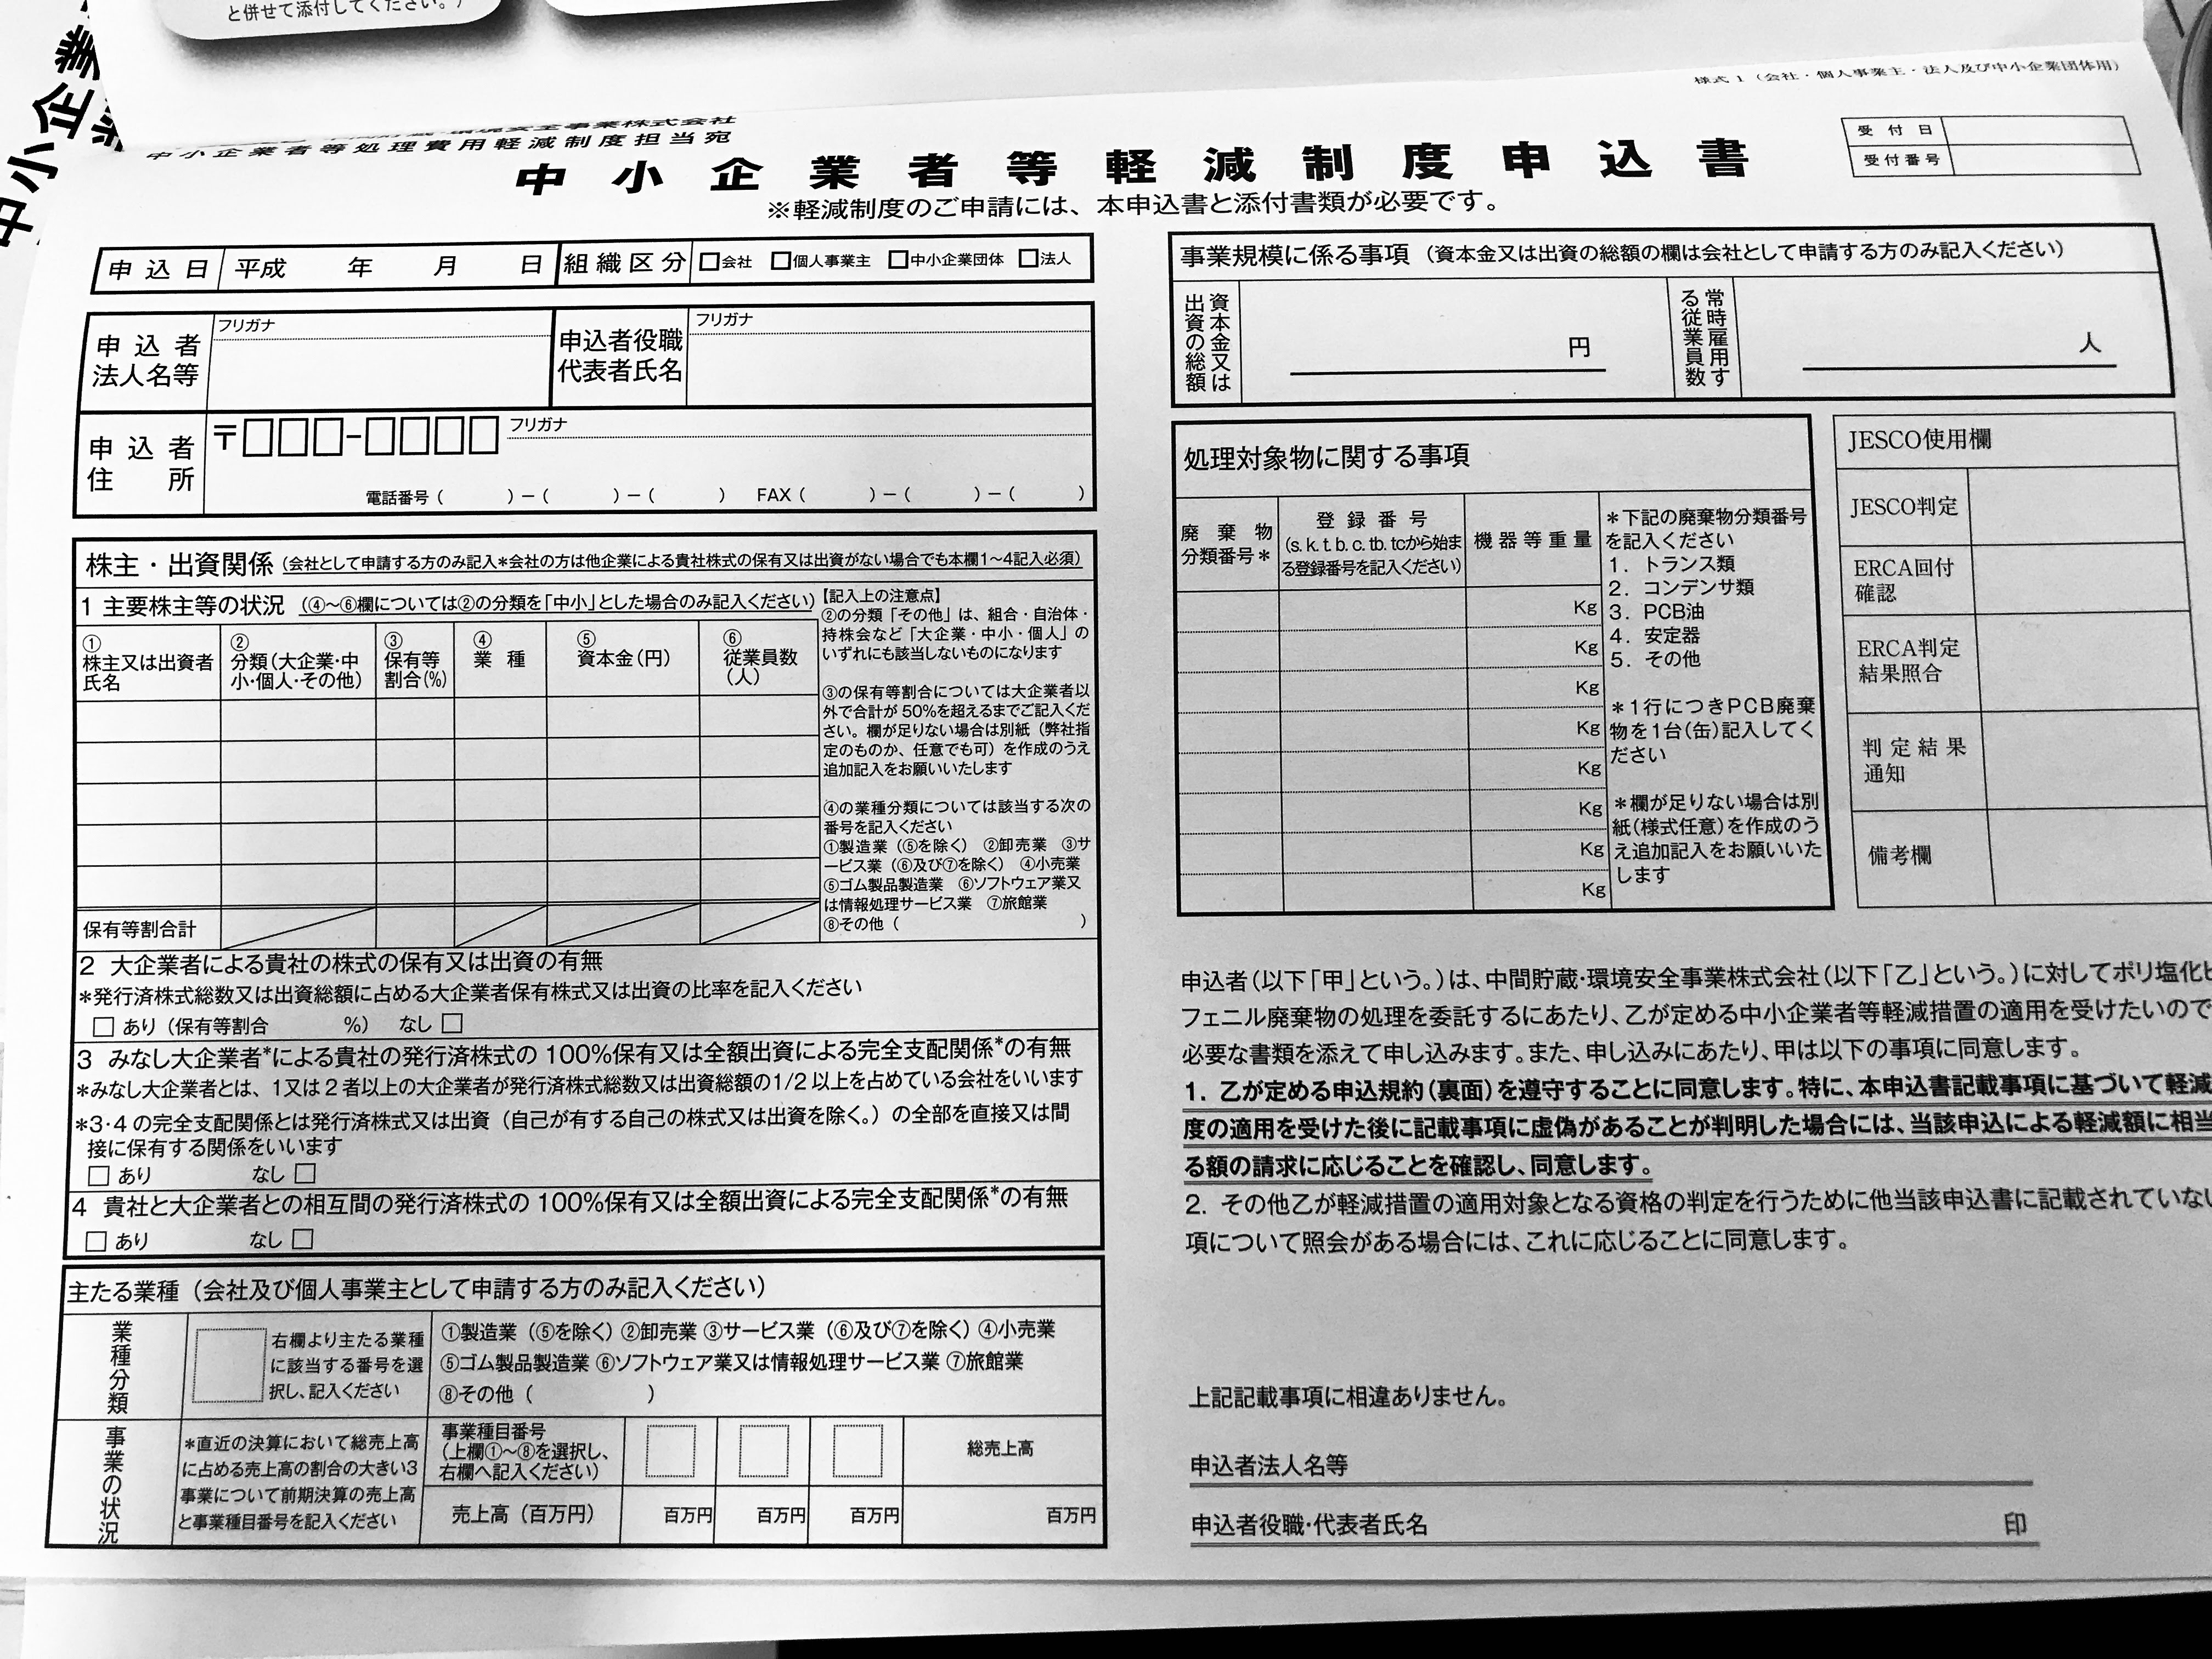 と併せて添付してください。）
中小企業
様式１（会社・個人事業主・法人及び中小企業団体用）
環境安全事業株式会社
中小企業者等処理費用軽減制度担当宛
中小企業者等軽減制度申込書
※軽減制度のご申請には、本申込書と添付書類が必要です。
受付日
受付番号
申込日 平成 年 月 日 組織区分 □会社 □個人事業主 □中小企業団体 □法人
申込者
法人名等
フリガナ
申込者役職
代表者氏名
フリガナ
申込者
住所
〒□□□-□□□□ フリガナ
電話番号（ ）－（ ）－（ ） FAX（ ）－（ ）－（ ）
株主・出資関係（会社として申請する方のみ記入＊会社の方は他企業による貴社株式の保有又は出資がない場合でも本欄1～4記入必須）
1 主要株主等の状況（④～⑥欄については②の分類を「中小」とした場合のみ記入ください）
①
株主又は出資者
氏名
②
分類（大企業・中
小・個人・その他）
③
保有等
割合（%）
④
業種
⑤
資本金（円）
⑥
従業員数
（人）
保有等割合計
【記入上の注意点】
②の分類「その他」は、組合・自治体・
持株会など「大企業・中小・個人」の
いずれにも該当しないものになります
③の保有等割合については大企業者以
外で合計が50%を超えるまでご記入くだ
さい。欄が足りない場合は別紙（弊社指
定のものか、任意でも可）を作成のうえ
追加記入をお願いいたします
④の業種分類については該当する次の
番号を記入ください
①製造業（⑤を除く） ②卸売業 ③サ
ービス業（⑥及び⑦を除く） ④小売業
⑤ゴム製品製造業 ⑥ソフトウェア業又
は情報処理サービス業 ⑦旅館業
⑧その他（ ）
2 大企業者による貴社の株式の保有又は出資の有無
＊発行済株式総数又は出資総額に占める大企業者保有株式又は出資の比率を記入ください
□ あり（保有等割合 %） なし □
3 みなし大企業者*による貴社の発行済株式の100%保有又は全額出資による完全支配関係*の有無
＊みなし大企業者とは、1又は2者以上の大企業者が発行済株式総数又は出資総額の1/2以上を占めている会社をいいます
＊3・4の完全支配関係とは発行済株式又は出資（自己が有する自己の株式又は出資を除く。）の全部を直接又は間
接に保有する関係をいいます
□ あり なし □
4 貴社と大企業者との相互間の発行済株式の100%保有又は全額出資による完全支配関係*の有無
□ あり なし □
主たる業種（会社及び個人事業主として申請する方のみ記入ください）
業種分類
右欄より主たる業種
に該当する番号を選
択し、記入ください
①製造業（⑤を除く）②卸売業 ③サービス業（⑥及び⑦を除く）④小売業
⑤ゴム製品製造業 ⑥ソフトウェア業又は情報処理サービス業 ⑦旅館業
⑧その他（ ）
事業の状況
＊直近の決算において総売上高
に占める売上高の割合の大きい3
事業について前期決算の売上高
と事業種目番号を記入ください
事業種目番号
（上欄①～⑧を選択し、
右欄へ記入ください）
総売上高
売上高（百万円） 百万円 百万円 百万円 百万円
事業規模に係る事項（資本金又は出資の総額の欄は会社として申請する方のみ記入ください）
資本金又は
出資の総額
円
常時雇用す
る従業員数
人
処理対象物に関する事項
廃棄物
分類番号＊
登録番号
（s. k. t. b. c. tb. tcから始ま
る登録番号を記入ください）
機器等重量
Kg
Kg
Kg
Kg
Kg
Kg
Kg
Kg
＊下記の廃棄物分類番号
を記入ください
1. トランス類
2. コンデンサ類
3. PCB油
4. 安定器
5. その他
＊1行につきPCB廃棄
物を1台（缶）記入してく
ださい
＊欄が足りない場合は別
紙（様式任意）を作成のう
え追加記入をお願いいた
します
JESCO使用欄
JESCO判定
ERCA回付
確認
ERCA判定
結果照合
判定結果
通知
備考欄
申込者（以下「甲」という。）は、中間貯蔵・環境安全事業株式会社（以下「乙」という。）に対してポリ塩化ビ
フェニル廃棄物の処理を委託するにあたり、乙が定める中小企業者等軽減措置の適用を受けたいので
必要な書類を添えて申し込みます。また、申し込みにあたり、甲は以下の事項に同意します。
1. 乙が定める申込規約（裏面）を遵守することに同意します。特に、本申込書記載事項に基づいて軽減
度の適用を受けた後に記載事項に虚偽があることが判明した場合には、当該申込による軽減額に相当
る額の請求に応じることを確認し、同意します。
2. その他乙が軽減措置の適用対象となる資格の判定を行うために他当該申込書に記載されていない
項について照会がある場合には、これに応じることに同意します。
上記記載事項に相違ありません。
申込者法人名等
申込者役職・代表者氏名 印